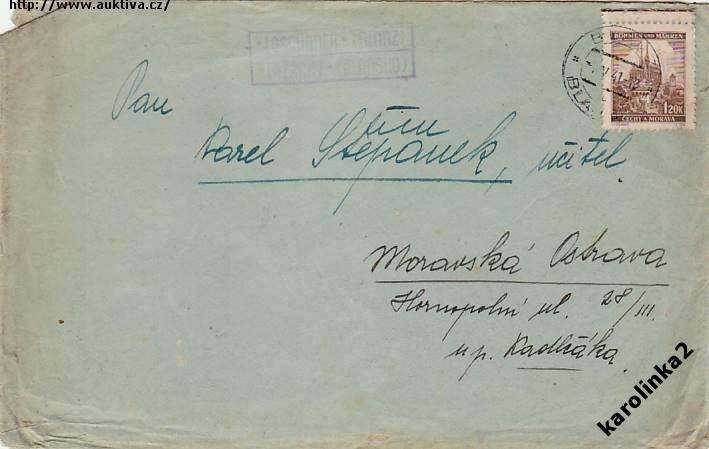 http://www.auktiva.cz/
BÖHMEN UND MÄHREN
1.20K
ČECHY A MORAVA
Pan
Karel Štěpanek, učitel
Moravská Ostrava
Hornopolní ul. 28/III.
u p. Kadlčáka.
karolinka2